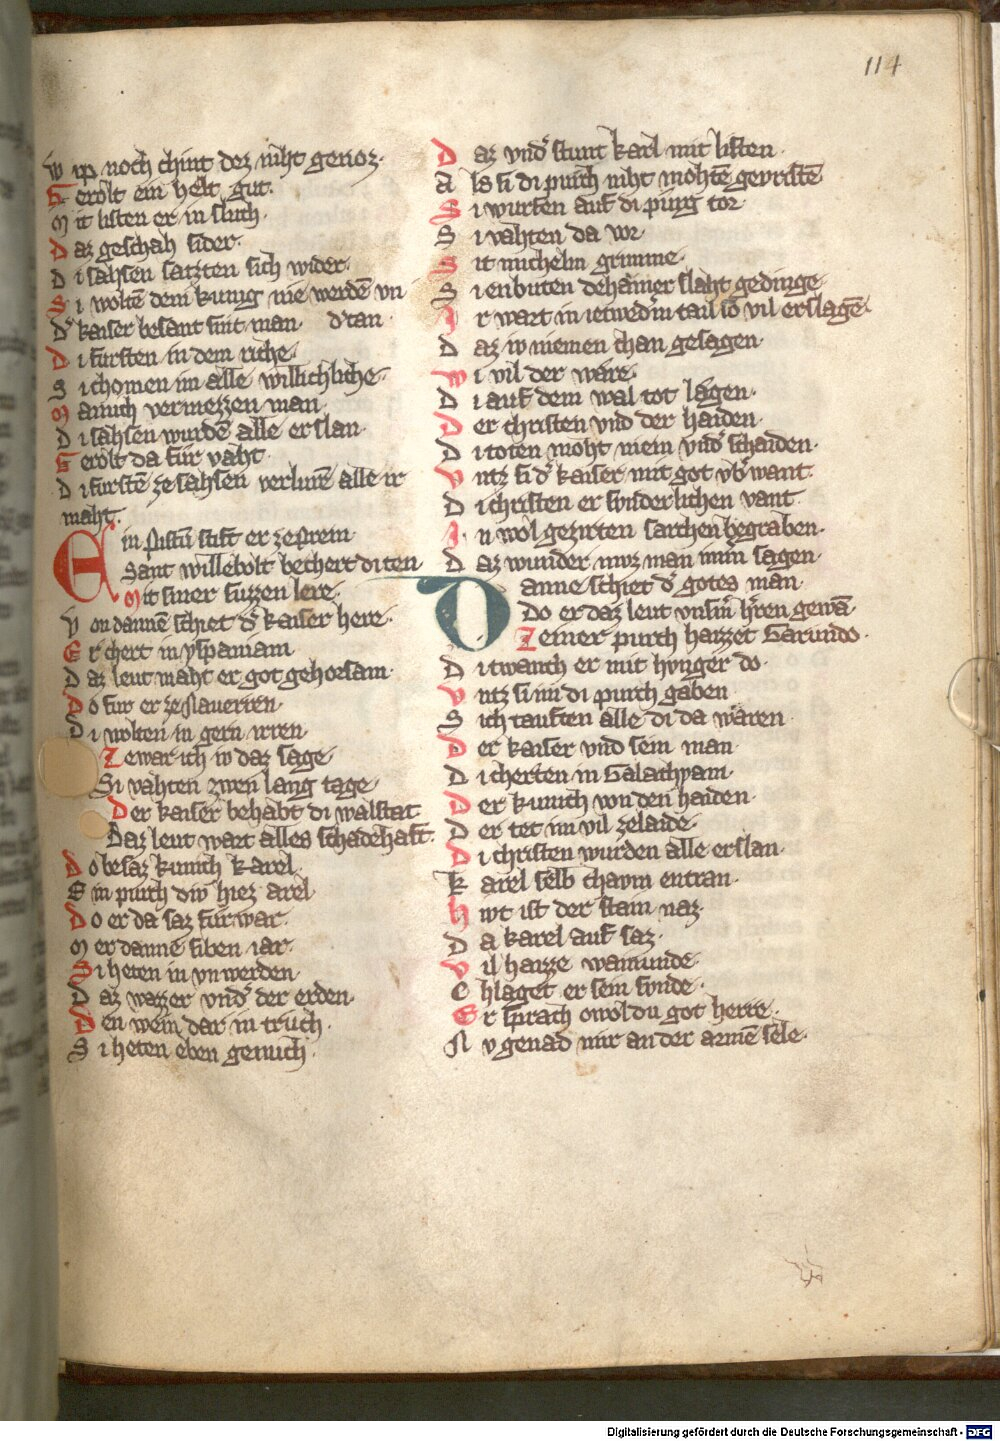 114
wip noch chint dez niht genoz.
Gerolt ein helt gut.
Mit listen er in sluch.
Daz geschah sider.
Di sahsen satzten sich wider.
Si wolten dem kunig nie werdē vn
dˀtan
Dˀ kaiser besant sine man
Di fursten in dem riche.
Si chomen im alle willichliche.
Manich vermezzen man.
Di sahsen wurdē alle erslan.
Gerolt da fur vaht.
Di furstē ze sahsen verlurē alle ir
maht.
Ein Pistū stift er ze Prem
Sant willebolt bechert di ten
Mit siner suzzen lere.
Von dannē schiet dˀ kaiser here.
Er chert in yspaniam
Daz leut maht er got gehorsam.
Do fur er ze Nauerren.
Di wolten in gern irren.
Zewar ich iw daz sage
Si vahten zwen lang tage.
Der kaiser behabt di walstat
Daz leut wart alles schadehaft.
Do besaz kunich karel
Ein purch diw hiez arel
Do er da saz fur war.
Mer danne siben iar.
Si heten in vnwerden
Daz wazzer vndˀ der erden.
Den wein dar in truch.
Si heten eben genuch.
Daz vndˀ stunt karl mit listen.
Als si di purch niht mohtē gevristē
Si wurfen auf di purg tor
Si vahten da vor
Mit michelm grimme.
Si enbuten dehainer slaht gedinge.
Ir wart in ietwedˀm tail so vil erslagē.
Daz iw niemen chan gesagen.
Wi vil der wäre.
Di auf dem wal tot lägen.
Der christen vnd der haiden.
Di toten moht niem vndˀ schaiden.
Vntz si dˀ kaiser mit got vbˀ want.
Di christen er sunderlichen vant
In wol gezirten sarchen begraben.
Daz wunder muz man imm sagen
Danne schiet dˀ gotes man
Do er daz leut vnsˀm hˀren gewā
Ze einer purch haizzet Garundo.
Di twanch er mit hunger do.
Vntz si im di purch gaben
Sich tauften alle di da wären.
Der kaiser vnd sein man.
Di cherten in Galachyam.
Der kunich von den haiden.
Der tet im vil ze laide.
Di christen wurden alle erslan.
Karel selb chaym entran.
Hiwt ist der stain naz.
Da karel auf saz.
Vil haizze wainunde.
Chlaget er sein sunde.
Er sprach owol du got herre.
Nv genad mir an der armē sele.
Digitalisierung gefördert durch die Deutsche Forschungsgemeinschaft - DFG